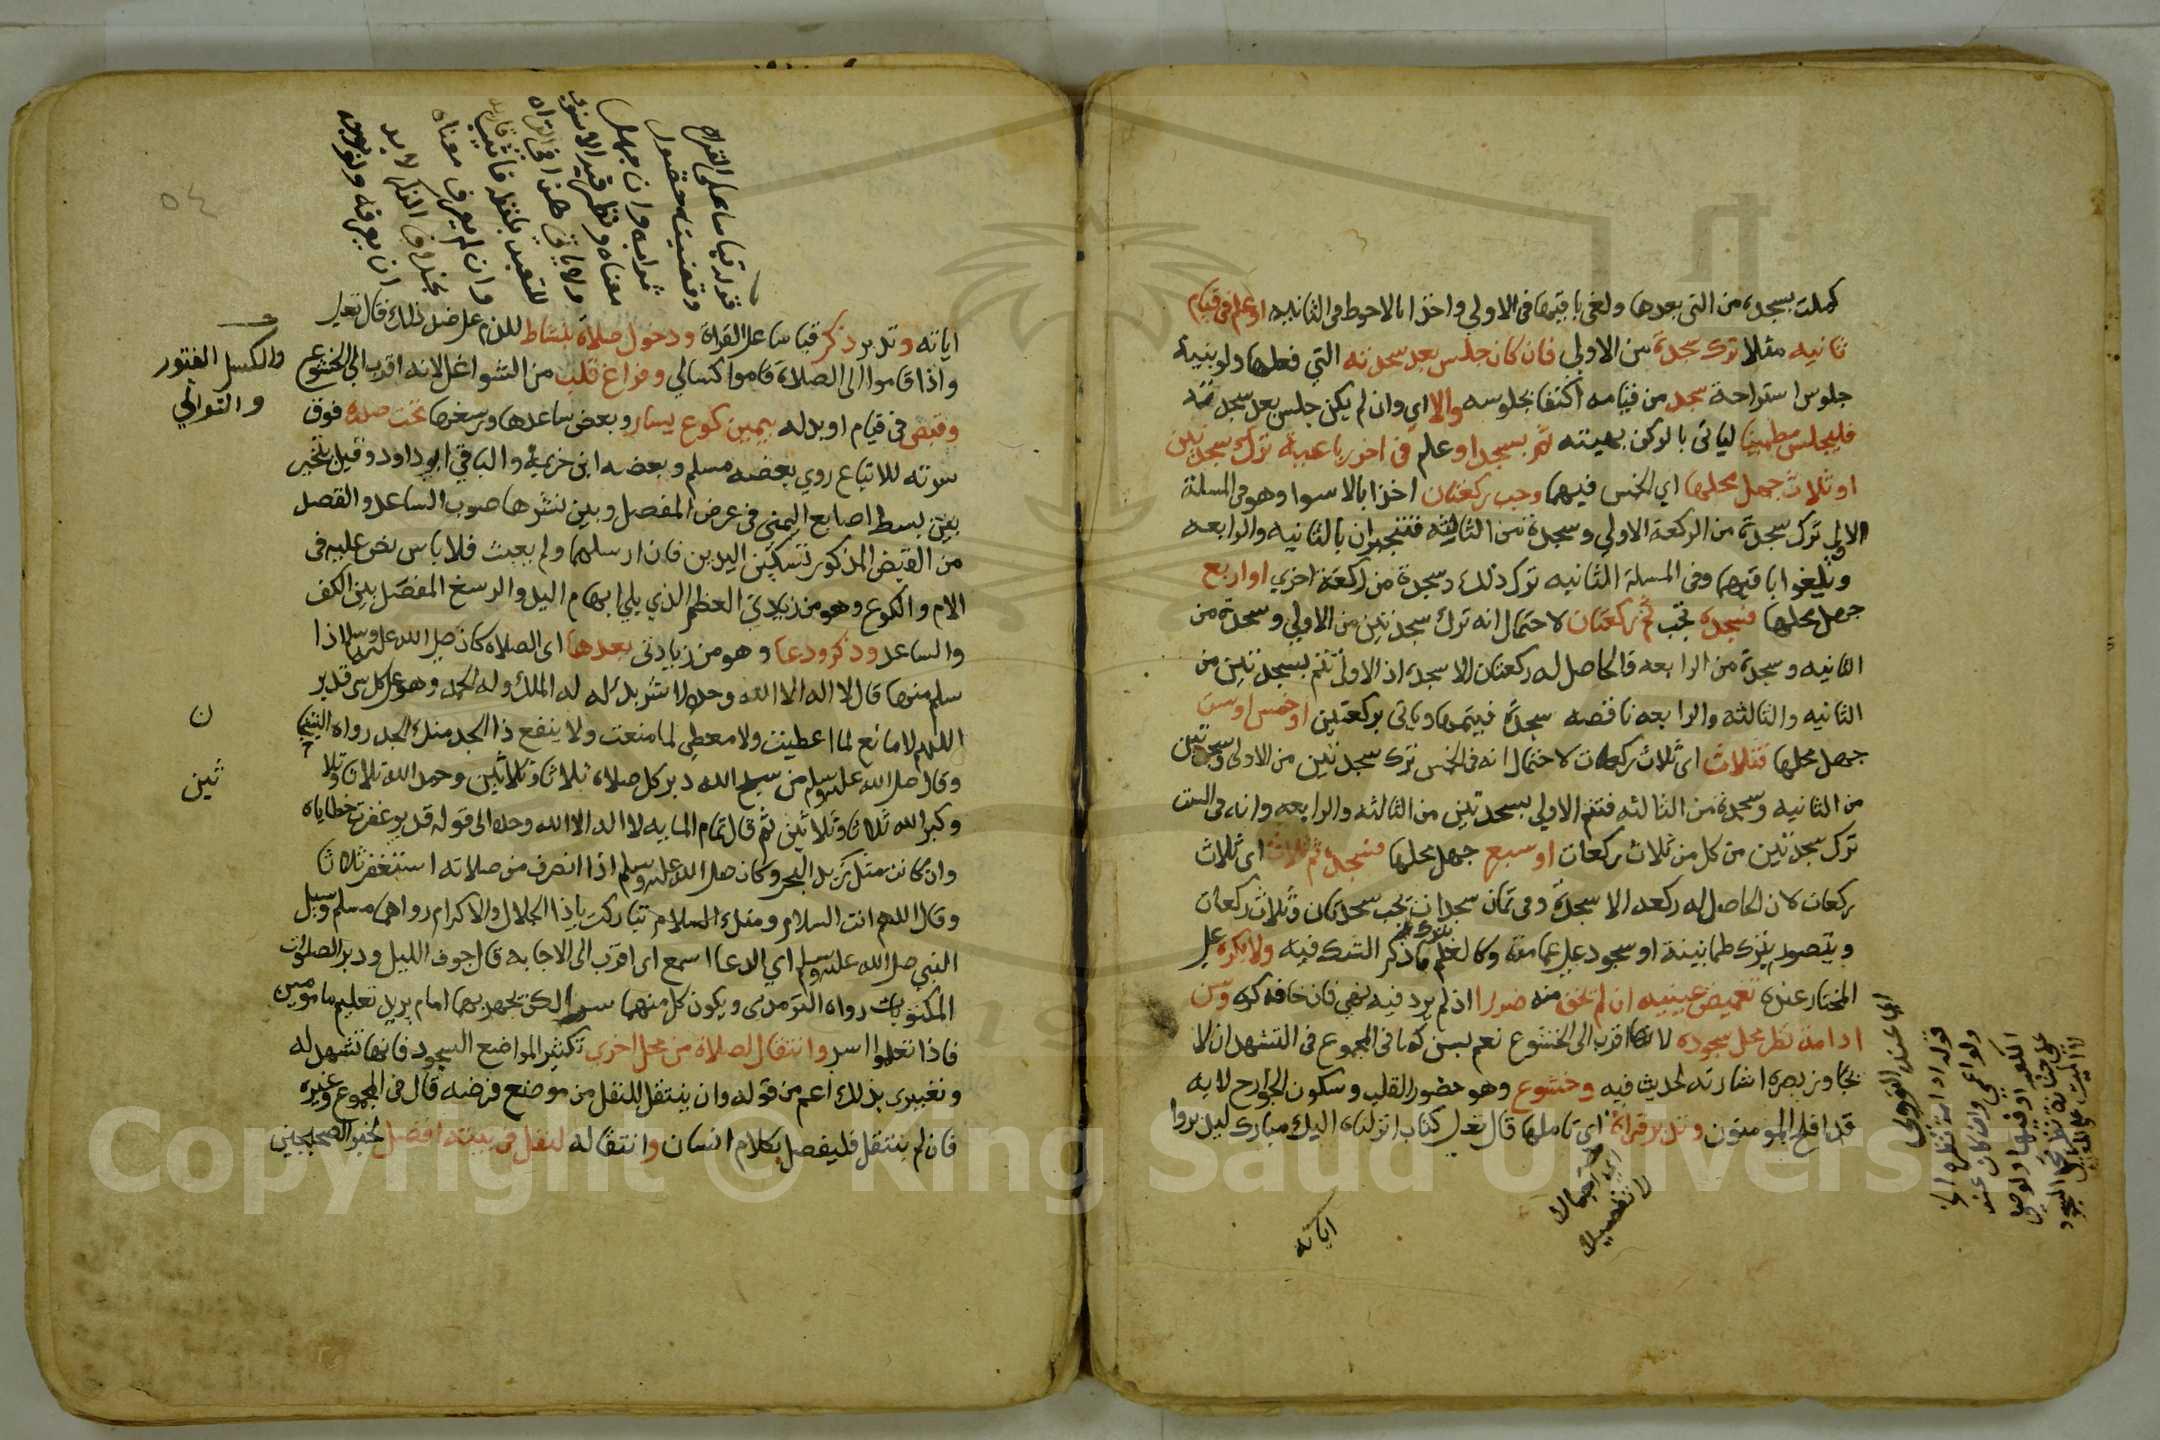 كملت بسجدة من التي بعدها ولغي باقيها في الاولي واخذا بالاحوط في الثانيه او علم في قيام
ثانيه مثلا ترك سجدة من الاولي فان كان جلس بعد سجدته التي فعلها ولو بنية
جلوس استراحة سجد من قيامه اكتفا بجلوسه والا اي وان لم يكن جلس بعد سجدته
فليجلس مطمينا لياتي بالركن بهيئته ثم يسجد او علم في اخر رباعية ترك سجدتين
او ثلاث جهل محلها اي الخمس فيهما وجب ركعتان اخذا بالاسوا وهو في المسلة
الاولي ترك سجدة من الركعة الاولي وسجدة من الثالثة فتنجبران بالثانيه والرابعه
ويلغوا باقيهما وفي المسلة الثانيه ترك ذلك وسجدة من ركعة اخري او اربع
جهل محلها فسجدة تجب ثم ركعتان لاحتمال انه ترك سجدتين من الاولي وسجدة من
الثانيه وسجدة من الرابعه فالحاصل له ركعتان الا سجدة اذ الاولي تتم بسجدتين من
الثانيه والثالثة والرابعه ناقصه سجدة فيتمها وياتي بركعتين او خمس او ست
جهل محلها فثلاث اي ثلاث ركعات لاحتمال انه في الخمس ترك سجدتين من الاولي وسجدتين
من الثانيه وسجدة من الثالثه فتتم الاولي بسجدتين من الثالثه والرابعه وانه في الست
ترك سجدتين من كل من ثلاث ركعات او سبع جهل محلها فسجدة ثم ثلاث اي ثلاث
ركعات لان الحاصل له ركعه الا سجدة وفي ثمان سجدات يجب سجدتان وثلاث ركعات
ويتصور بترك طمانينة او سجود علي عمامته وكالعلم بترك ما ذكر الشك فيه ولا يكره علي
المختار عندي تغميض عينيه ان لم يخف منه ضررا اذ لم يرد فيه نهي فان خافه كره وسن
ادامة نظر محل سجوده لانها اقرب الى الخشوع نعم يسن كما في المجموع في التشهد ان لا
يجاوز بصره اشارته لحديث فيه وخشوع وهو حضور القلب وسكون الجوارح لايه
قد افلح المومنون وتدبر قراة اي تاملها قال تعالى كتاب انزلناه اليك مبارك ليدبروا
اجمالا
لا تفصيلا
اياته
قوله ادامة نظره الخ
ولو اعمي وان كان عند
الكعبه او فيها ولو صلي
علي جنازة نظر محل السجود
اياته وتدبر ذكر قياسا علي القراة ودخول صلاة بنشاط للذم علي ضد ذلك قال تعالى
واذا قاموا الى الصلاة قاموا كسالي وفراغ قلب من الشواغل لانه اقرب الى الخشوع
وقبض في قيام او بدله بيمين كوع يسار وبعض ساعدها ورسغها تحت صدره فوق
سرته للاتباع روي بعضه مسلم وبعضه ابن خزيمة والباقي ابو داود وقيل يتخير
بين بسط اصابع اليمني في عرض المفصل وبين نشرها صوب الساعد والقصد
من القبض المذكور تسكين اليدين فان ارسلهما ولم يعبث فلا باس نص عليه في
الام والكوع وهو من زيادتي العظم الذي يلي ابهام اليد والرسغ المفصل بين الكف
والساعد وذكر ودعا وهو من زيادتي بعدها اي الصلاة كان صلى الله عليه وسلم اذا
سلم منها قال لا اله الا الله وحده لا شريك له له الملك وله الحمد وهو علي كل شي قدير
اللهم لا مانع لما اعطيت ولا معطي لما منعت ولا ينفع ذا الجد منك الجد رواه الشيخا
وقال صلى الله عليه وسلم من سبح الله دبر كل صلاة ثلاثا وثلاثين وحمد الله ثلاثا وثلا
وكبر الله ثلاثا وثلاثين ثم قال تمام المايه لا اله الا الله وحده الى قوله قدير غفرت خطاياه
وان كانت مثل زبد البحر وكان صلى الله عليه وسلم اذا انصرف من صلاته استغفر ثلاثا
وقال اللهم انت السلام ومنك السلام تباركت يا ذا الجلال والاكرام رواهما مسلم وسيل
النبي صلى الله عليه وسلم اي الدعا اسمع اي اقرب الى الاجابه قال جوف الليل ودبر الصلوات
المكتوبات رواه الترمذي ويكون كل منهما سرا لكن يجهر بهما امام يريد تعليم مامومين
فاذا تعلموا اسر وانتقال لصلاة من محل اخري تكثيرا لمواضع السجود فانها تشهد له
وتعبيري بذلك اعم من قوله وان ينتقل للنفل من موضع فرضه قال في المجموع وغيره
فان لم ينتقل فليفصل بكلام انسان وانتقاله لنفل في بيته افضل لخبر الصحيحين
والكسل الفتور
والتواني
ن
ثين
قوله قياسا علي القراة
معناه
وان لم يعرف معناه
ان يعرفه ولو بوجه
٥٤
Copyright © King Saud University